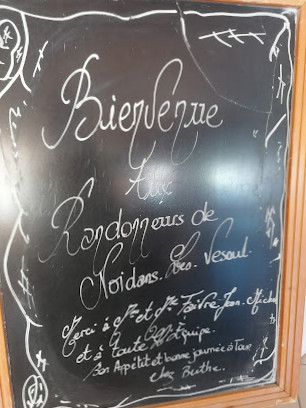 Bienvenue
Aux
Randonneurs de
Noidans. Les. Vesoul.
Merci à Mme et Mr Faivre Jean. Michel
et à toute l'Equipe.
Bon Appétit et bonne journée à Tous
chez Berthe.